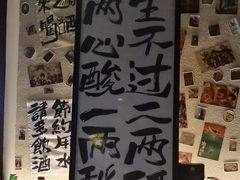 生不过二两
两心酸一两
節約用水
請多飲酒